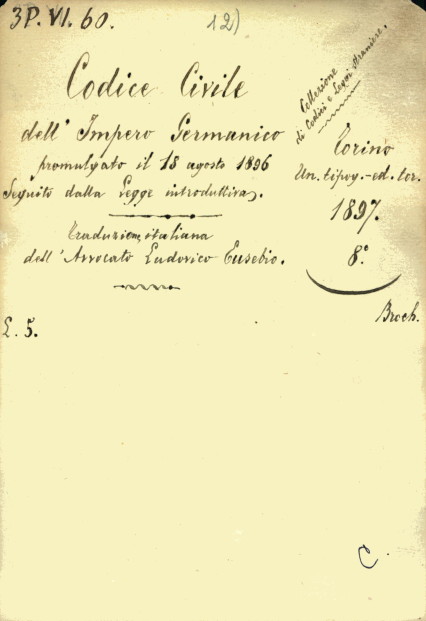 3P. VI. 60.
12)
Codice Civile
dell' Impero Germanico
promulgato il 18 agosto 1896
Seguito dalla Legge introduttiva.
Traduzione italiana
dell' Avvocato Ludovico Eusebio.
Collezione
di Codici e Leggi straniere.
Torino
Un. tipog.-ed. tor.
1897.
8.°
Broch.
£. 5.
C.